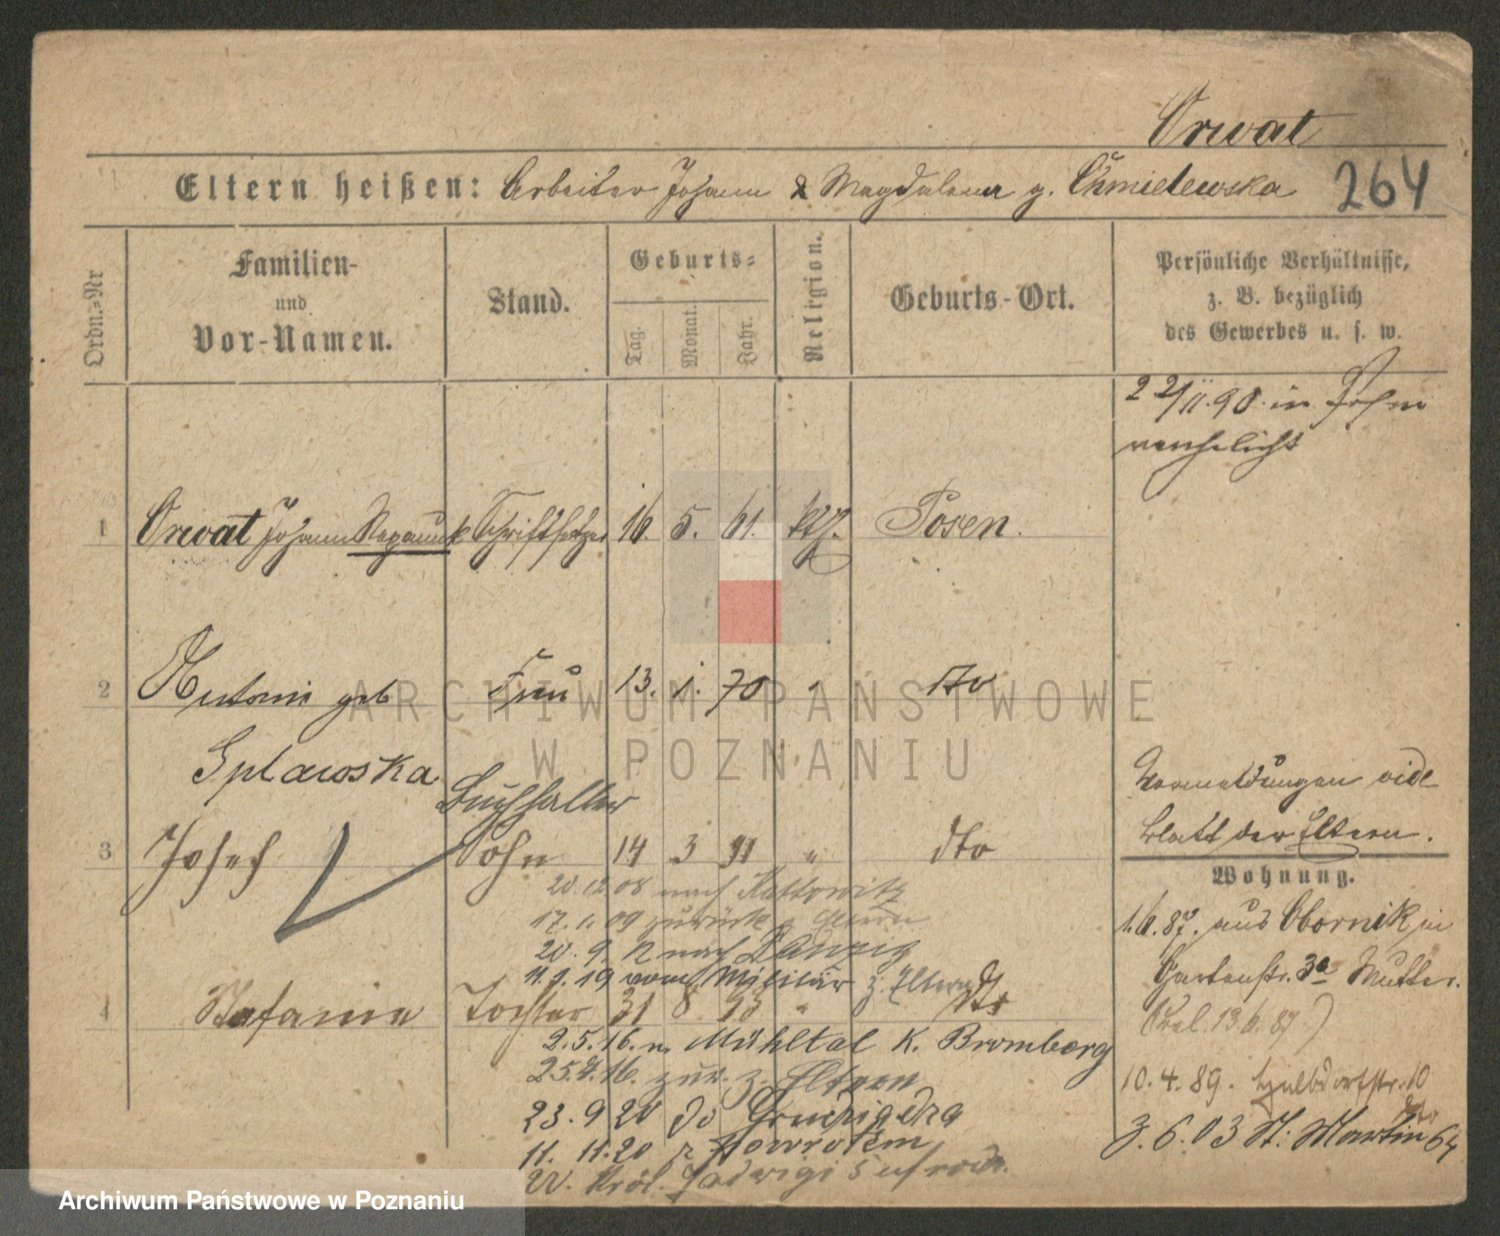 Orwat
Eltern heißen: Arbeiter Johann & Magdalena g. Chmielewska 264
Ordn.-Nr
Familien-
und
Vor-Namen.
Stand.
Geburts-
Tag.
Monat.
Jahr.
Religion.
Geburts-Ort.
Persönliche Verhältnisse,
z. B. bezüglich
des Gewerbes u. s. w.
22/11.90. in
verehelicht
1 Orwat Johann Schriftsetzer 16. 5. 61. kth. Posen.
2 Antonie geb Frau 13. 1. 70 " dto
Splawska
Buchhalter
3 Josef Sohn 14 3 91 " dto
Vermeldungen vide
Blatt der Eltern.
Wohnung.
20.12.08 nach Kattowitz
17.1.09 zurück
20. 9. 12 nach Danzig
11.1.19 vom Militär z. Eltern
4 Stefanie Tochter 31 8 93 " dto
2.5.16. n. Mühltal K. Bromberg
25.7.16. zur. z. Eltern
23. 9 20 do Grudziądza
11. 11.20 z powrotem
Król. Jadwigi 5
1.6.87. aus Obornik in
Gartenstr. 3a Mutter.
13.6.87)
10. 4. 89. 10
3. 6. 03 St. Martin 64
ARCHIWUM PAŃSTWOWE
W POZNANIU
Archiwum Państwowe w Poznaniu